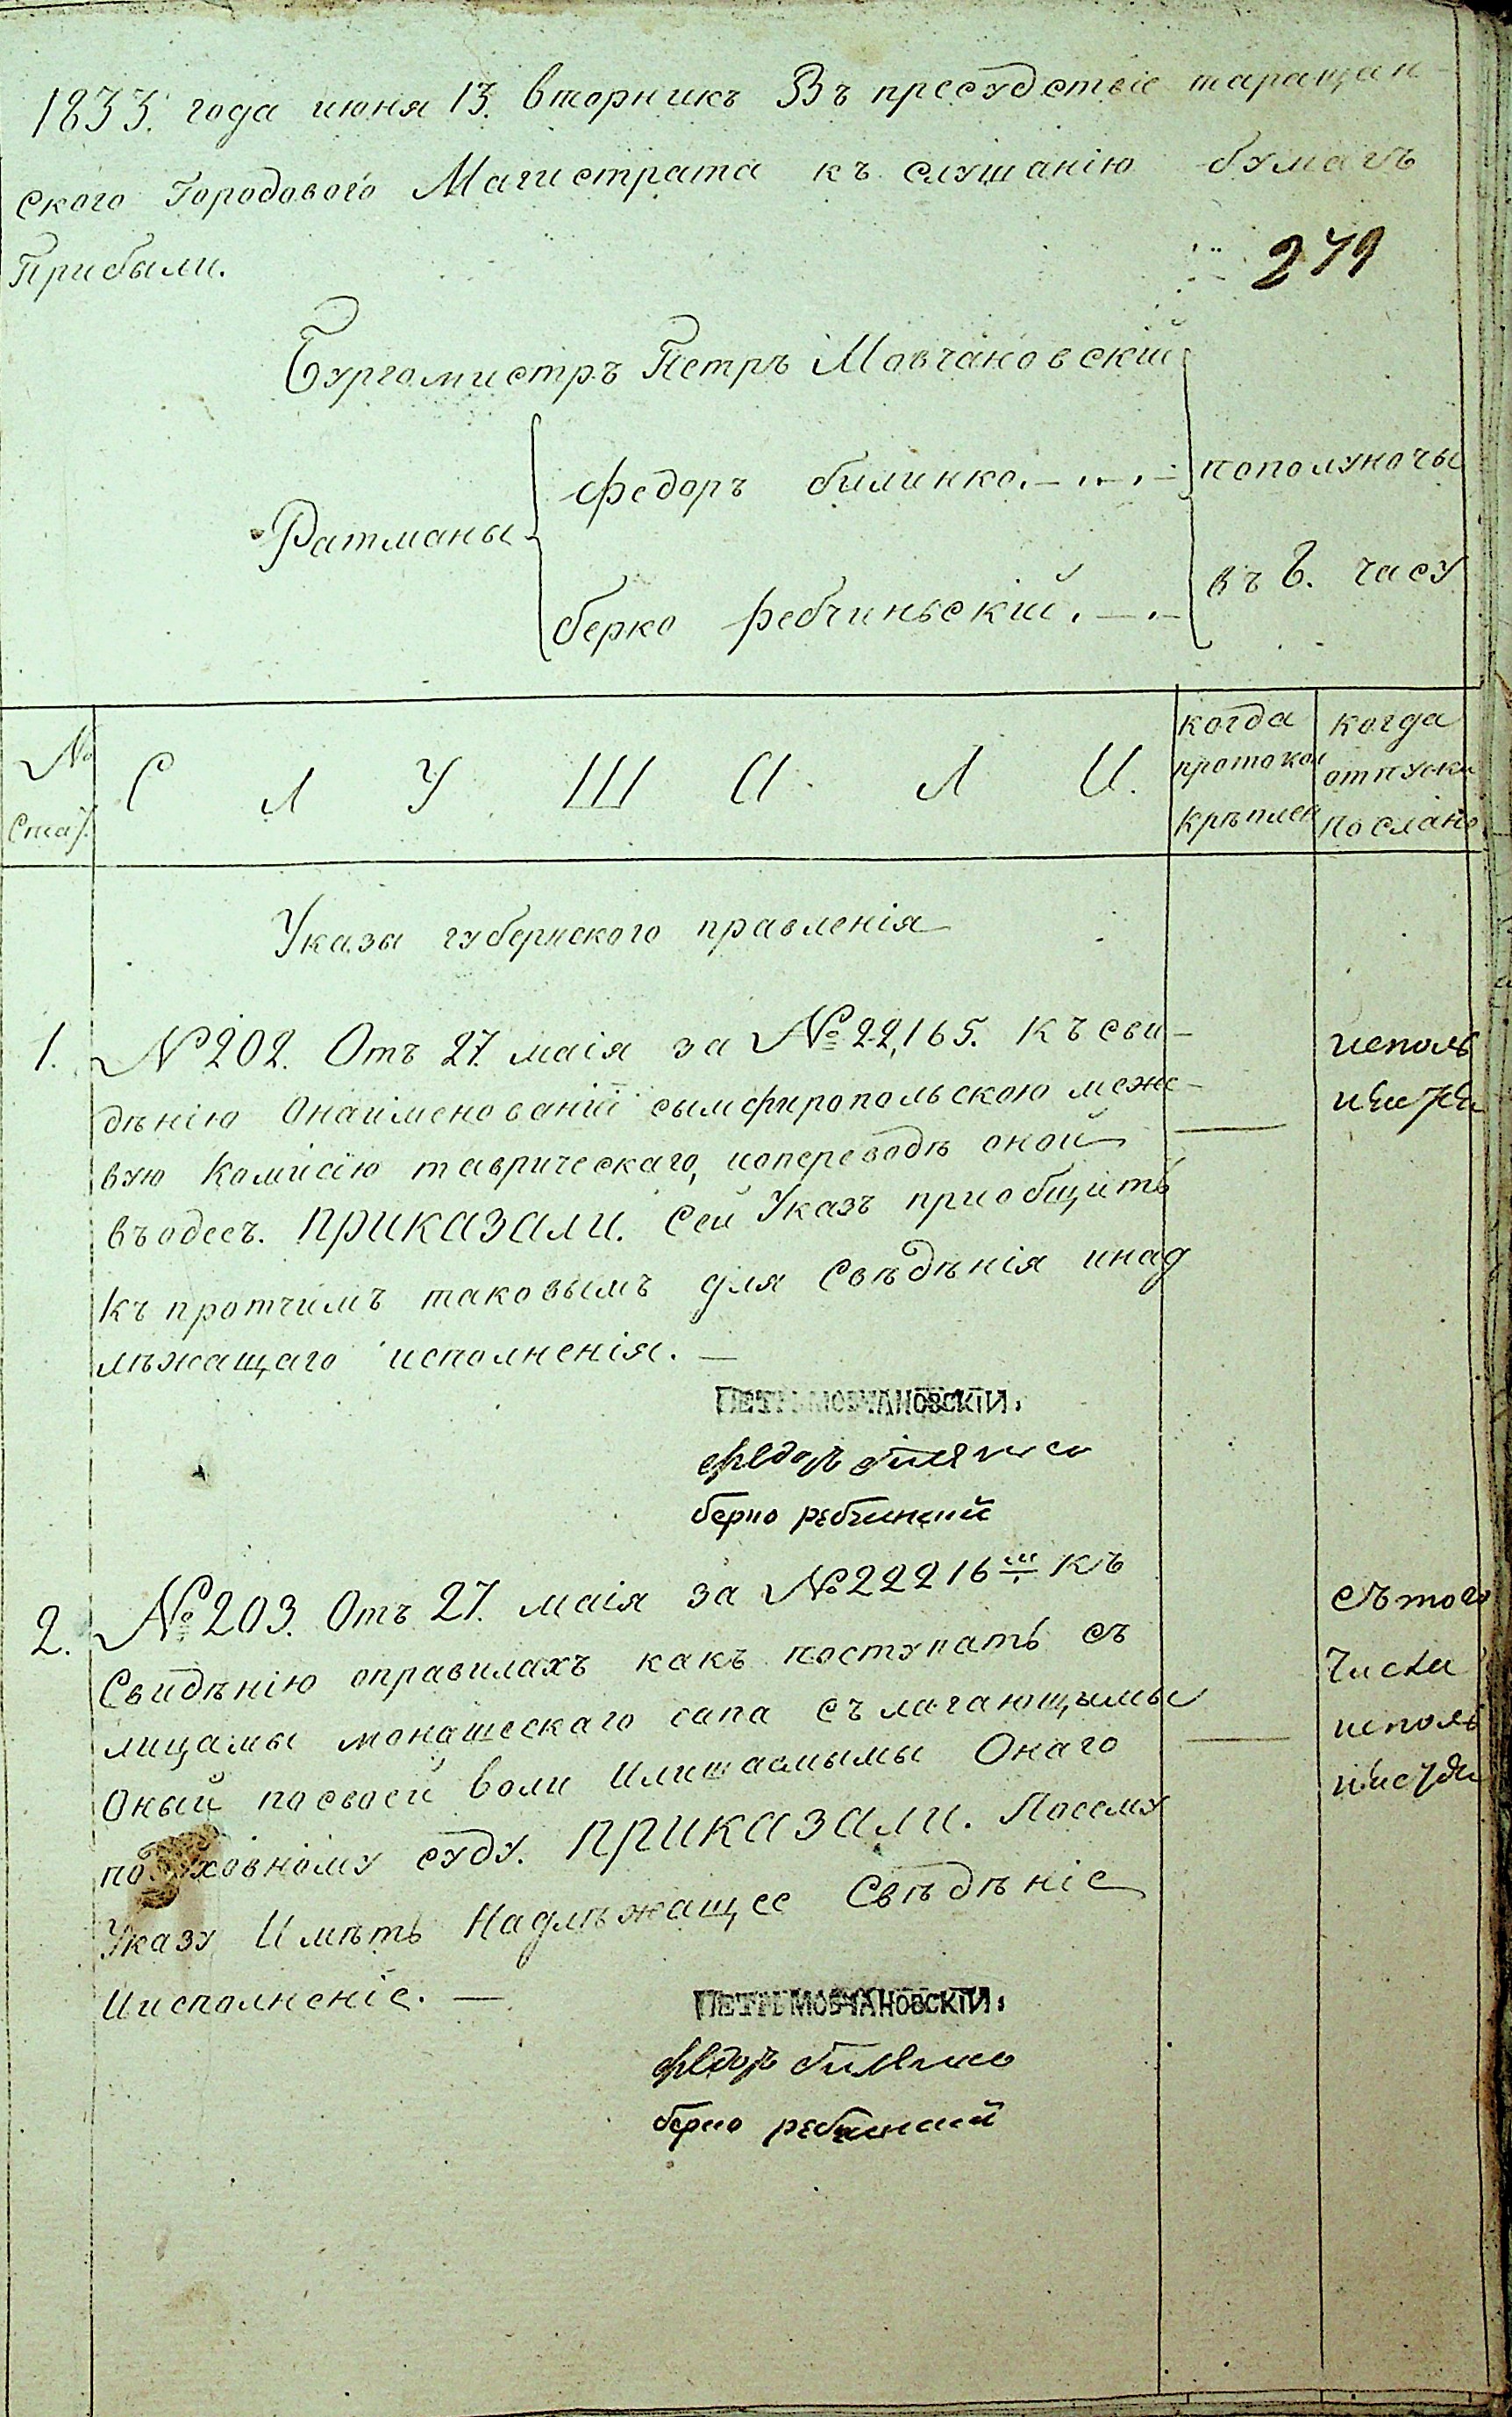 1833. года июня 13. вторникъ Въ пресудствіе таращан-
ского Городового Магистрата къ слушанію бумагъ
Прибыли.
279
Бургомистръ Петръ Мовчановскій
Ратманы
федоръ билинко.
берко ребчиньскій.
пополуночы
въ 6. часу
№ Стат.
С Л У Ш А Л И.
когда протокол крѣплен
когда отпуски послано
Указы губернского правленія
1. № 202. Отъ 27. маія за № 22,165. Къ сви-
дѣнію Онаименованіи сымфиропольскою меже-
вую Комисію таврическаго, иопереводѣ оной
въ одес. ПРИКАЗАЛИ. Сей Указъ приобщить
къ протчимъ таковымъ для Свѣдѣнія инад
лѣжащаго исполненія. —
ПЕТРЬ МОВЧАНОВСКІЙ.
федоръ
берко ребчинский
2. № 203. Отъ 27. маія за № 22216ш къ
Свидѣнію оправилахъ какъ поступать съ
лицамы монашескаго сана съ лагающымы
Оный посвоей воли Илишаемымы Онаго
по ховному суду. ПРИКАЗАЛИ. Посему
Указу Имѣть Надлѣжащее Свѣдѣніе
Иисполненіе. —
ПЕТРЬ МОВЧАНОВСКІЙ.
федоръ
берко ребчинский
исполь
съ того
числа
исполь